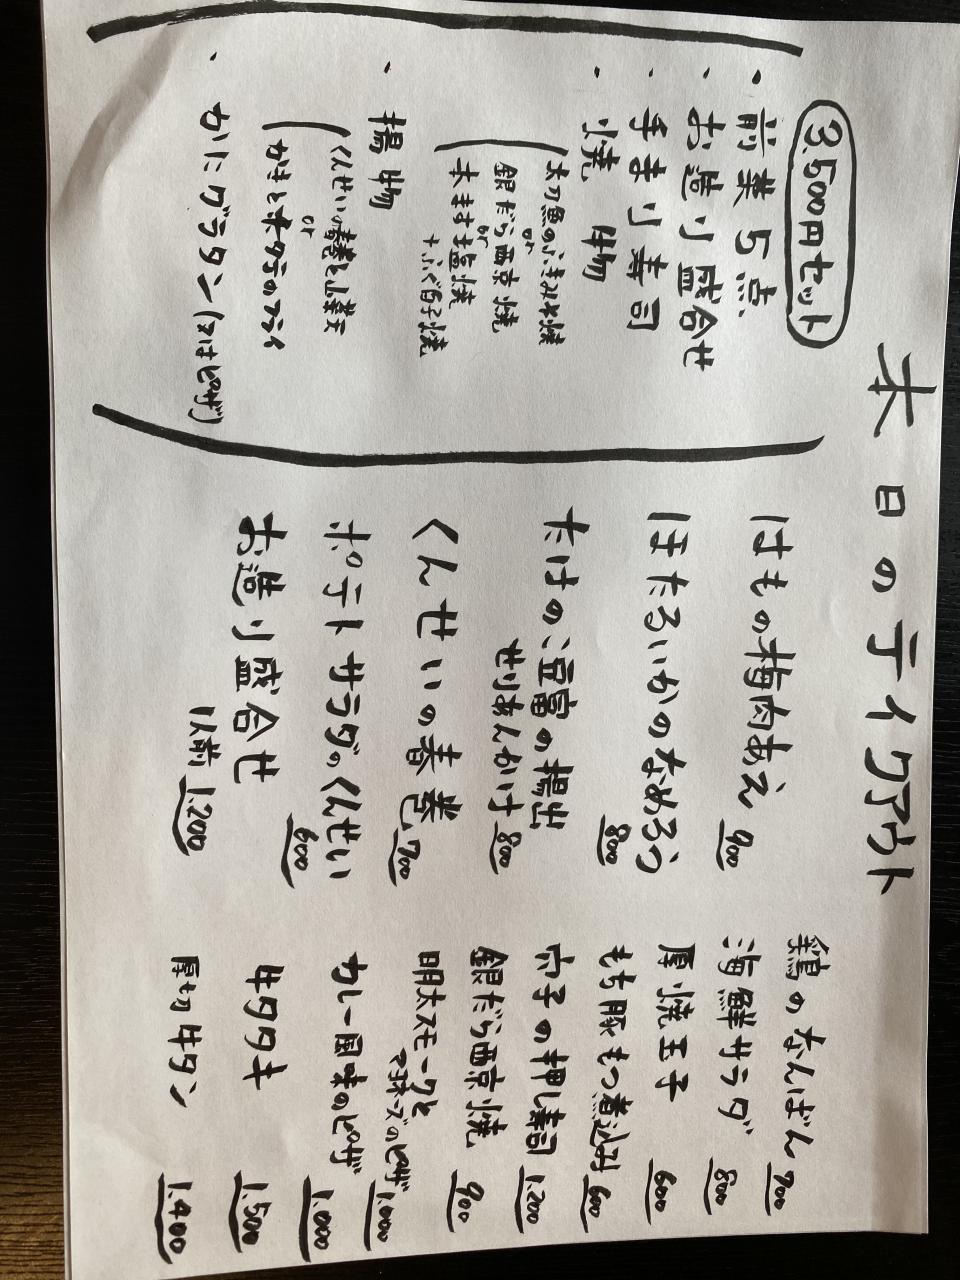 本日のテイクアウト
3,500円セット
・前菜5点
・お造り盛合せ
・手まり寿司
・焼物
太刀魚のふきみそ焼
or
銀だら西京焼
or
本ます塩焼
+ふぐ白子焼
・揚物
くんせいの春巻と山菜天
or
かきとホタテのフライ
・かにグラタン(又はピザ)
はもの梅肉あえ 900
ほたるいかのなめろう 800
たけのこ豆富の揚出
せりあんかけ 800
くんせいの春巻 700
ポテトサラダのくんせい 600
お造り盛合せ
1人前 1,200
鶏のなんばん 700
海鮮サラダ 800
厚焼玉子 600
もち豚もつ煮込み 600
穴子の押し寿司 1,200
銀だら西京焼 900
明太スモークと
マヨネーズのピザ 1,000
カレー風味のピザ 1,000
牛タタキ 1,500
厚切牛タン 1,400